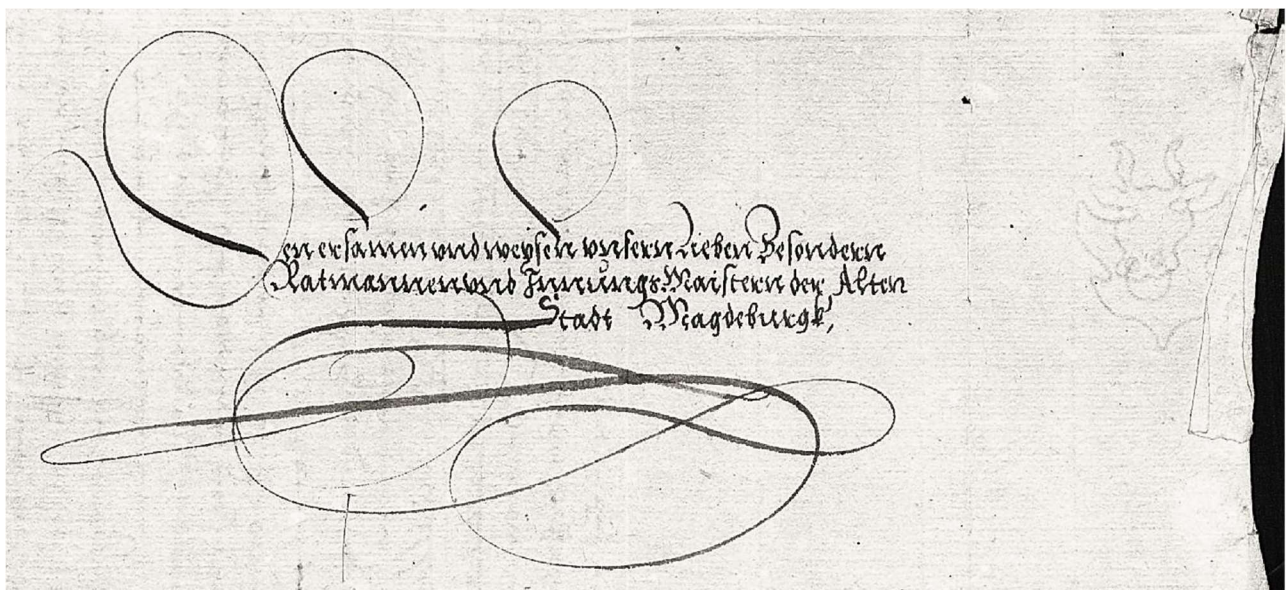 Den ersamen vnd weysen vnsern lieben besondern
Ratmannen vnd Innungs Maistern der Alten
Stadt Magdeburgk,